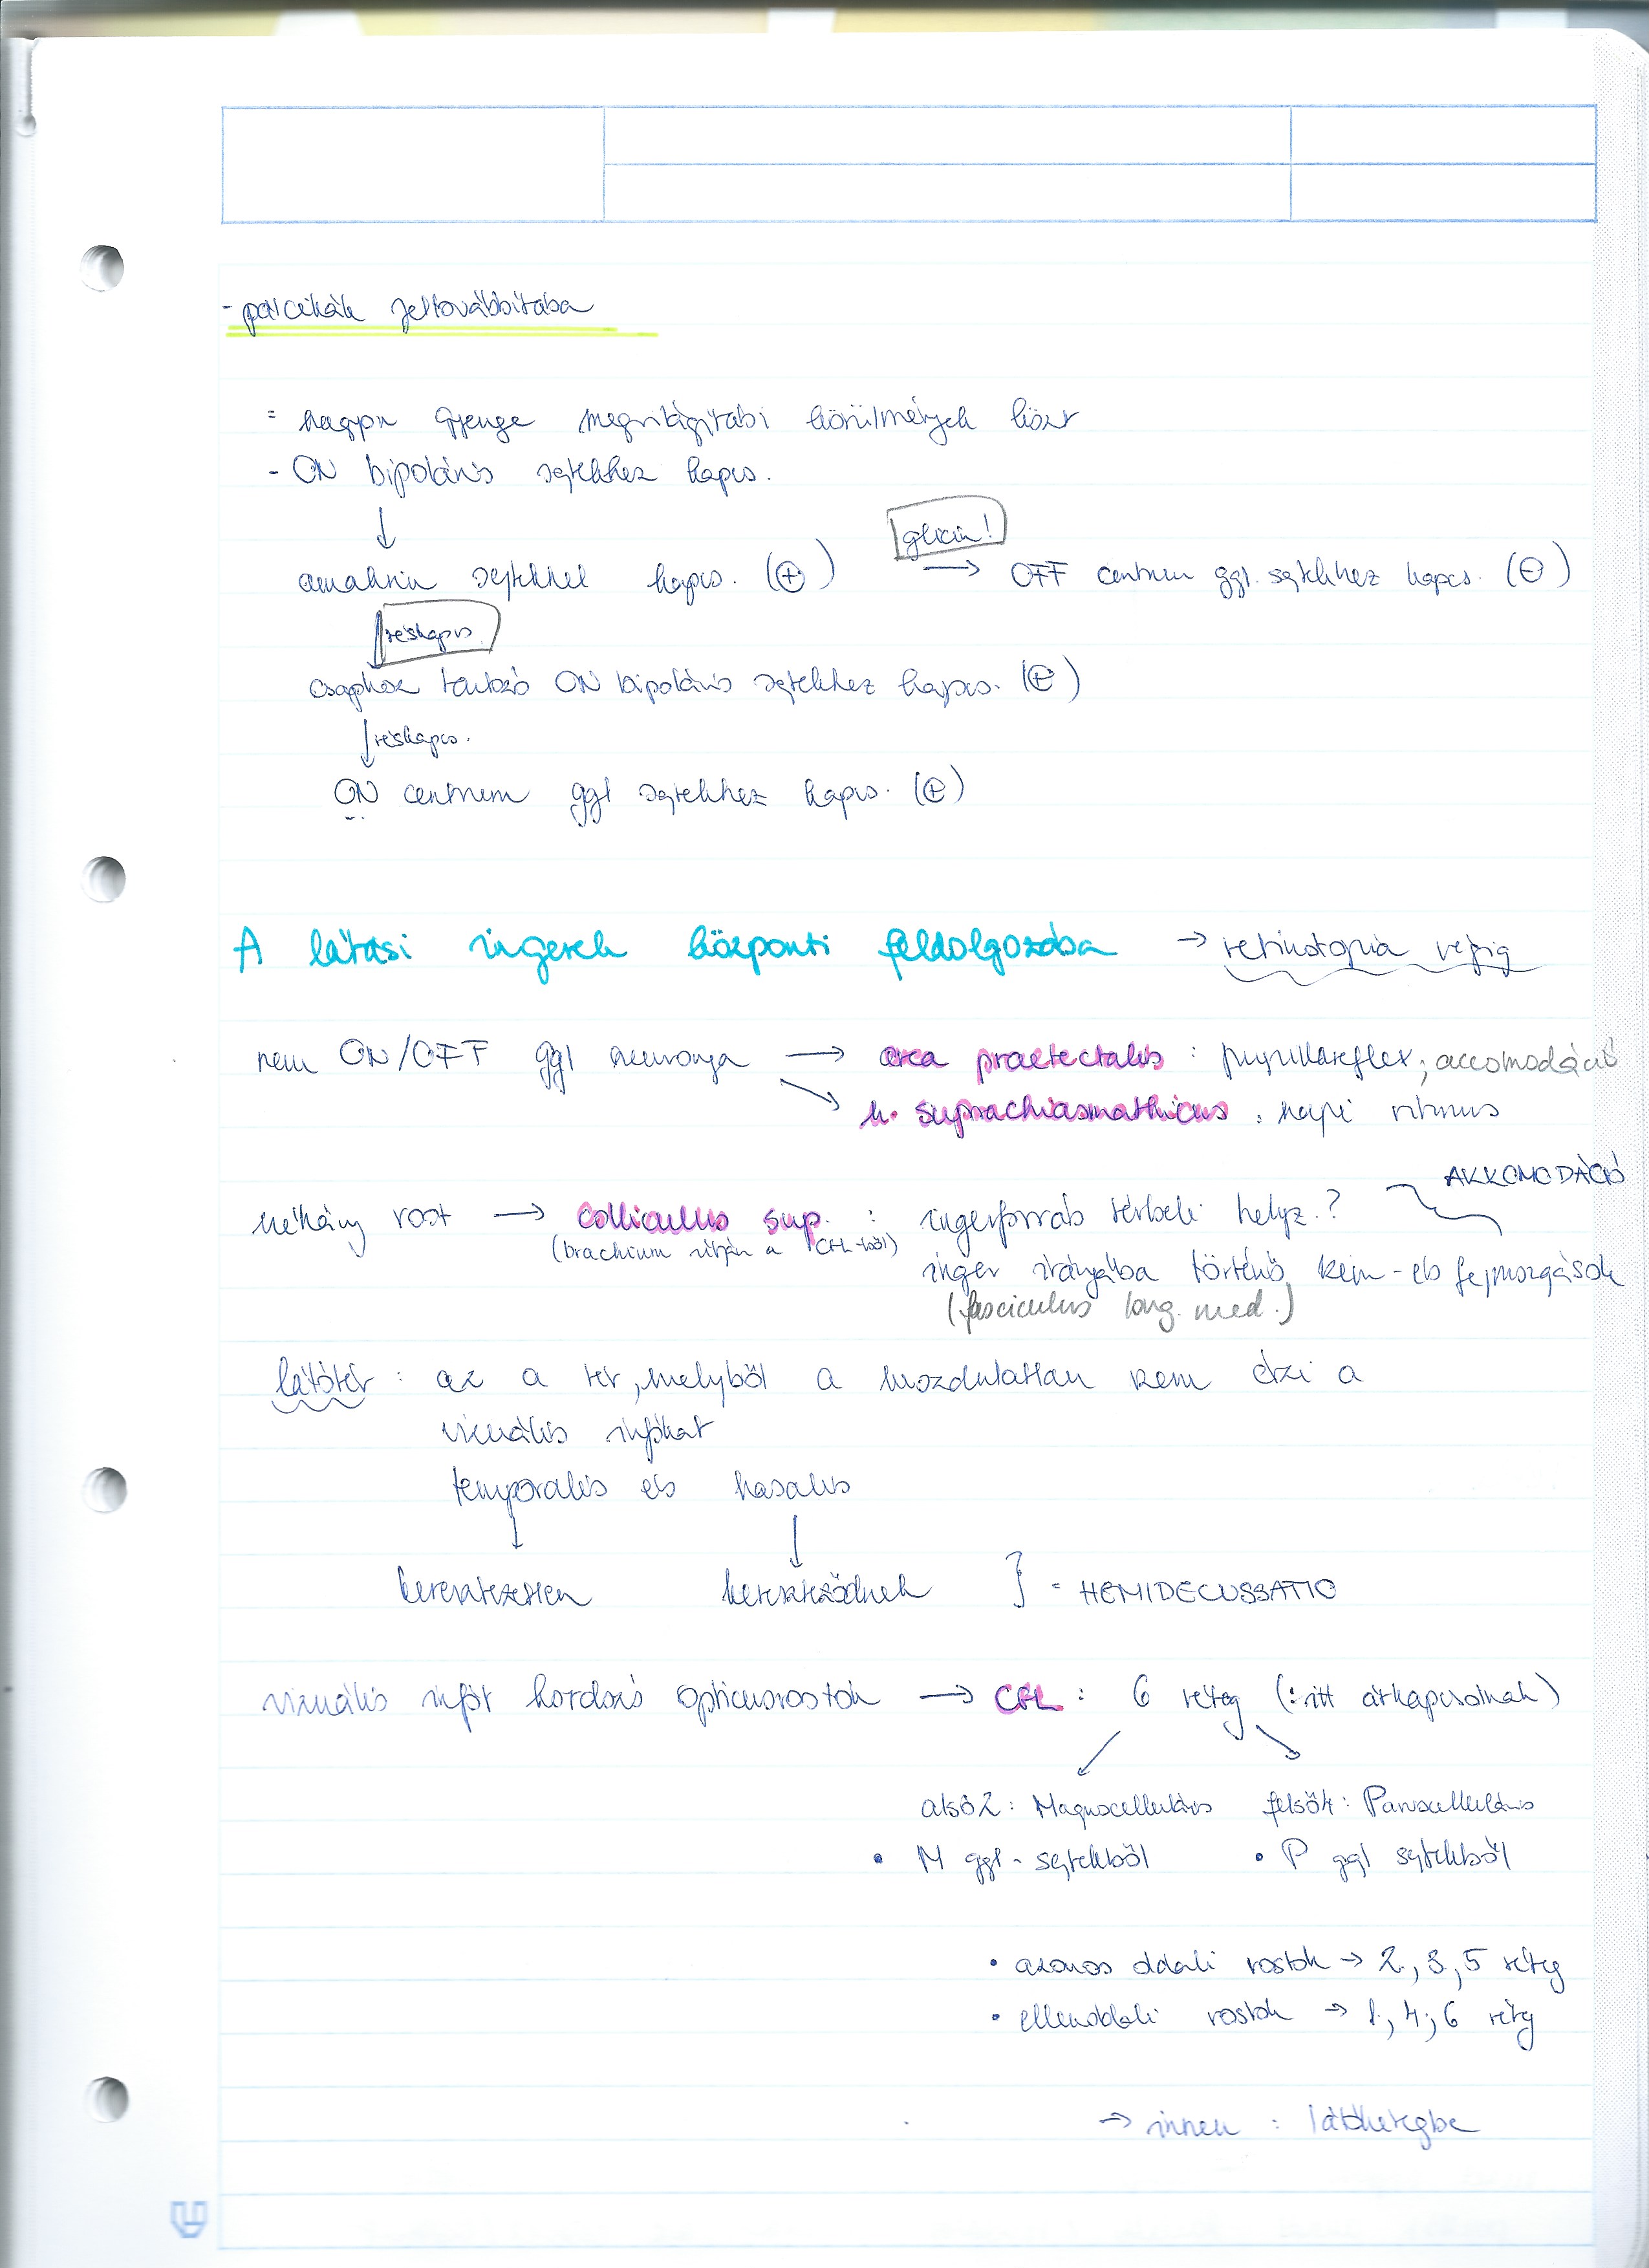 - pálcikák jeltovábbítása
- nagyon gyenge megvilágítási körülmények közt
- ON bipoláris sejtekhez kapcs.
↓
glicin!
amakrin sejtekkel kapcs. (+) → OFF centrum ggl. sejtekhez kapcs. (-)
↓ réskapcs.
csaphoz tartozó ON bipoláris sejtekhez kapcs. (+)
↓ réskapcs.
ON centrum ggl sejtekhez kapcs. (+)
A látási ingerek központi feldolgozása → retinotopia végig
nem ON/OFF ggl neuronja → area praetectalis : pupillareflex, accomodáció
↘ n. suprachiasmathicus : napi ritmus
AKKOMODÁCIÓ
néhány rost → colliculus sup. : ingerforrás térbeli helyz.?
(brachium útján a CGL-ből)
inger irányába történő szem- és fejmozgások
(fasciculus long. med.)
látótér : az a tér, melyből a mozdulatlan szem érzi a
vizuális infókat
temporalis és nasalis
↓ ↓
keresztezetlen kereszteződnek } = HEMIDECUSSATIO
vizuális infót hordozó opticusrostok → CGL : 6 réteg (: itt átkapcsolnak)
↙ ↘
alsó 2 : Magnocellularis felső 4 : Parvocellularis
• M ggl - sejtekből • P ggl sejtekből
• azonos oldali rostok → 2, 3, 5 réteg
• ellenoldali rostok → 1, 4, 6 réteg
→ innen : látókéregbe